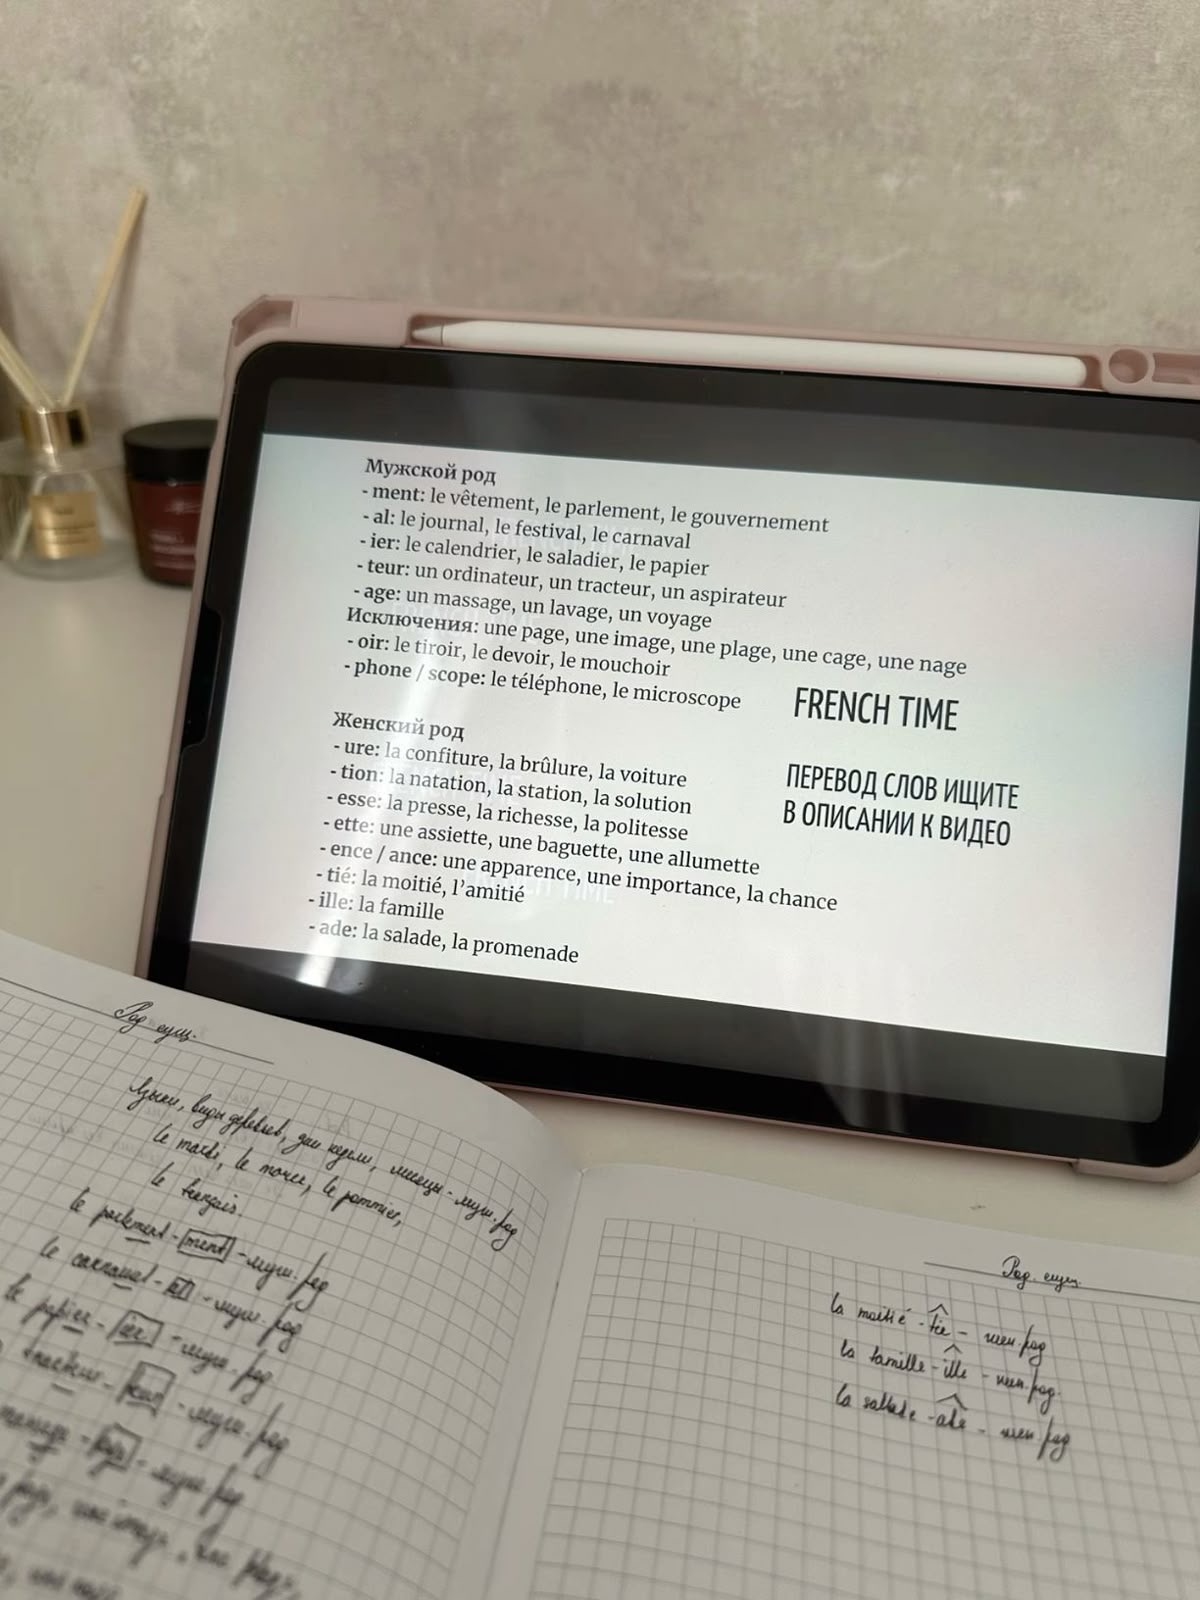 Мужской род
- ment: le vêtement, le parlement, le gouvernement
- al: le journal, le festival, le carnaval
- ier: le calendrier, le saladier, le papier
- teur: un ordinateur, un tracteur, un aspirateur
- age: un massage, un lavage, un voyage
Исключения: une page, une image, une plage, une cage, une nage
- oir: le tiroir, le devoir, le mouchoir
- phone / scope: le téléphone, le microscope
Женский род
- ure: la confiture, la brûlure, la voiture
- tion: la natation, la station, la solution
- esse: la presse, la richesse, la politesse
- ette: une assiette, une baguette, une allumette
- ence / ance: une apparence, une importance, la chance
- tié: la moitié, l'amitié
- ille: la famille
- ade: la salade, la promenade
FRENCH TIME
ПЕРЕВОД СЛОВ ИЩИТЕ
В ОПИСАНИИ К ВИДЕО
Род сущ.
Языки, виды деревьев, дни недели, месяцы - муж. род
le mardi, le pommier,
le français.
le parlement - ment - муж. род
le carnaval - al - муж. род
le papier - ier - муж. род
- муж. род
- муж. род
Род. сущ.
la moitié - tié - жен. род
la famille - ille - жен. род.
la sallade - ade - жен. род